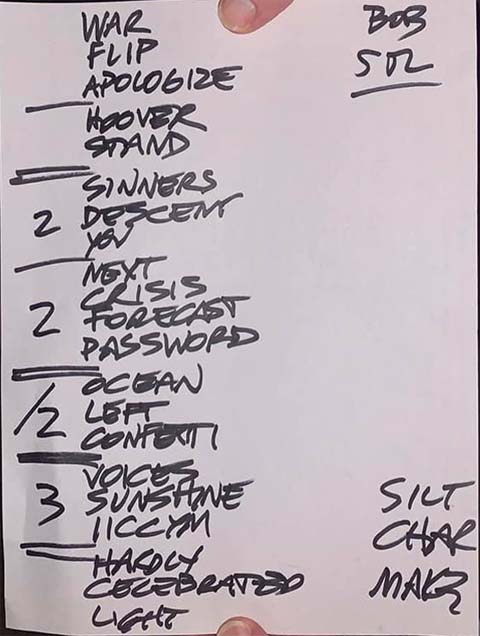 WAR
FLIP
APOLOGIZE
HOOVER
STAND
SINNERS
2 DESCENT
YOU
NEXT
CRISIS
2 FORECAST
PASSWORD
OCEAN
/2 LEFT
CONFETTI
VOICES
3 SUNSHINE
IICCYM
HARDLY
CELEBRATED
LIGHT
BOB
SILT
CHAR